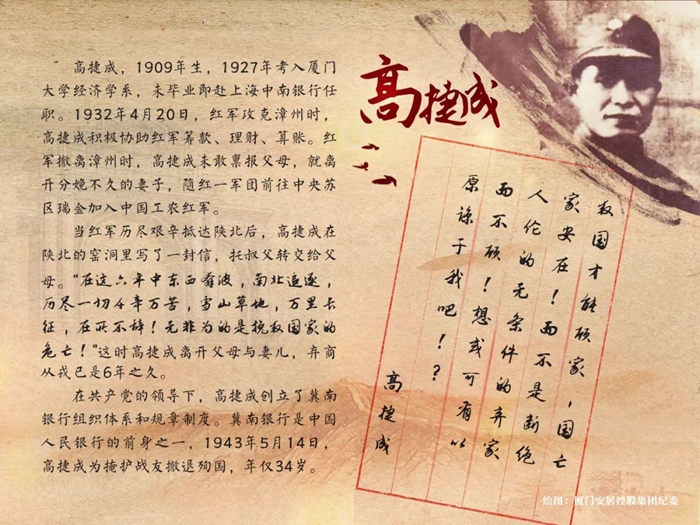 高捷成，1909年生，1927年考入厦门
大学经济学系，未毕业即赴上海中南银行任
职。1932年4月20日，红军攻克漳州时，
高捷成积极协助红军筹款、理财、算账。红
军撤离漳州时，高捷成未敢禀报父母，就离
开分娩不久的妻子，随红一军团前往中央苏
区瑞金加入中国工农红军。
当红军历尽艰辛抵达陕北后，高捷成在
陕北的窑洞里写了一封信，托叔父转交给父
母。“在这六年中东西奔波，南北追逐，
历尽一切千辛万苦，雪山草地，万里长
征，在所不辞！无非为的是挽救国家的
危亡！”这时高捷成离开父母与妻儿，弃商
从戎已是6年之久。
在共产党的领导下，高捷成创立了冀南
银行组织体系和规章制度。冀南银行是中国
人民银行的前身之一，1943年5月14日，
高捷成为掩护战友撤退殉国，年仅34岁。
高捷成
救国才能顾家，国亡
家安在！而不是断绝
人伦的无条件的弃家
而不顾！想或可有以
原谅于我吧！？
高捷成
绘图：厦门安居控股集团纪委